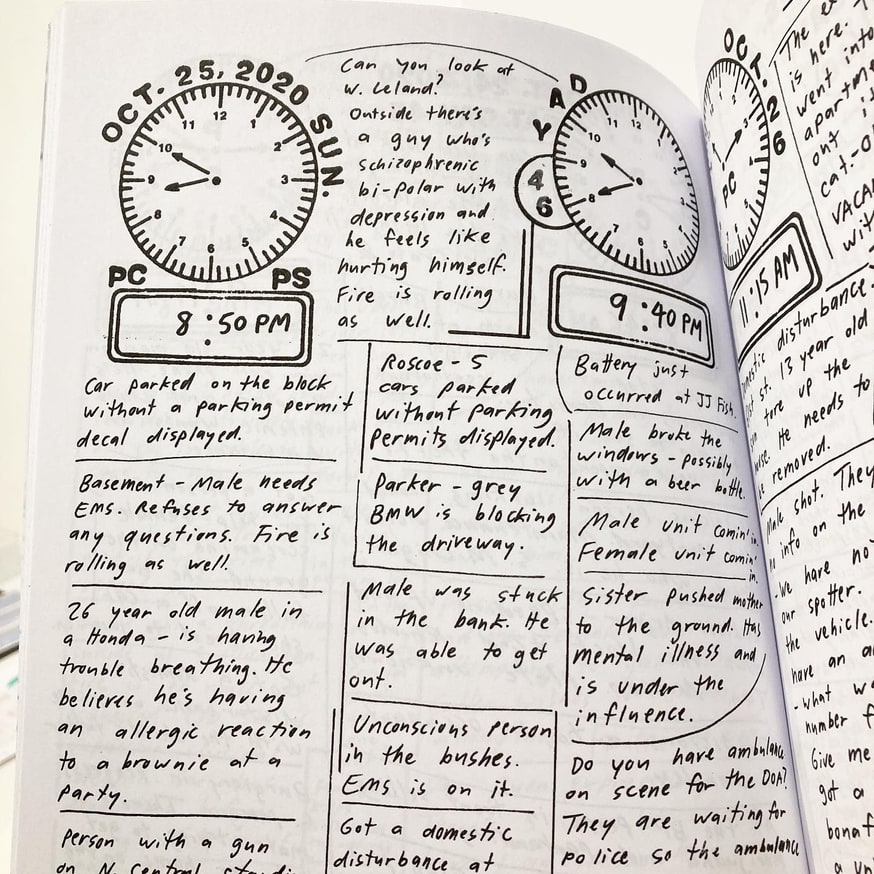 OCT. 25, 2020
SUN.
12
1
2
3
4
5
6
7
8
9
10
11
PC
PS
8:50 PM
Car parked on the block
without a parking permit
decal displayed.
Basement - Male needs
EMS. Refuses to answer
any questions. Fire is
rolling as well.
26 year old male in
a Honda - is having
trouble breathing. He
believes he's having
an allergic reaction
to a brownie at a
party.
Person with a gun
on N. Central
Can you look at
W. Leland?
Outside there's
a guy who's
schizophrenic
bi-polar with
depression and
he feels like
hurting himself.
Fire is rolling
as well.
Roscoe - 5
cars parked
without parking
permits displayed.
Parker - grey
BMW is blocking
the driveway.
Male was stuck
in the bank. He
was able to get
out.
Unconscious person
in the bushes.
EMS is on it.
Got a domestic
disturbance at
DAY
46
12
1
2
3
4
5
6
7
8
9
10
11
9:40 PM
Battery just
occurred at JJ Fish.
Male broke the
windows - possibly
with a beer bottle.
Male unit comin' in.
Female unit comin'
in.
Sister pushed mother
to the ground. Has
mental illness and
is under the
influence.
Do you have ambulance
on scene for the DOA?
They are waiting for
police so the ambulance
OCT. 26
PC
11:15 AM
The
is here.
went into
out
VACA
with
disturbance.
st. 13 year old
tore up the
He needs to
removed.
Male shot. They
info on the
We have no
our spotter.
the vehicle.
have an
- what
number
Give me
got a
bonaf